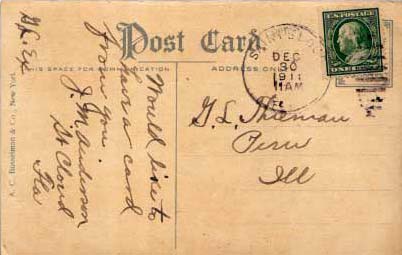 Post Card.
THIS SPACE FOR COMMUNICATION
ADDRESS ONLY
DEC
30
1911
11AM
U.S. POSTAGE
ONE
Would like to
have a card
from you.
J. M. Anderson
St Cloud
Fla
G. L. Thieman
Peru
Ill
A. C. Bosselman & Co., New York.